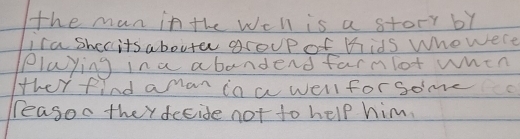 the man in the well is a story by
ira sher its aboutea group of kids who were
playing in a abandend farm lot when
they find a man in a well for some
reason they decide not to help him.